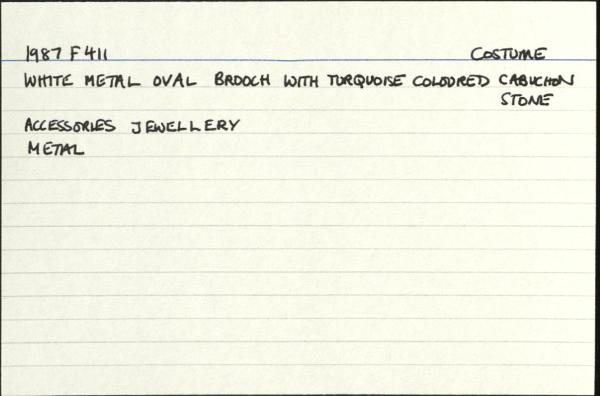 1987 F 411 COSTUME
WHITE METAL OVAL BROOCH WITH TURQUOISE COLOURED CABUCHON
STONE
ACCESSORIES JEWELLERY
METAL